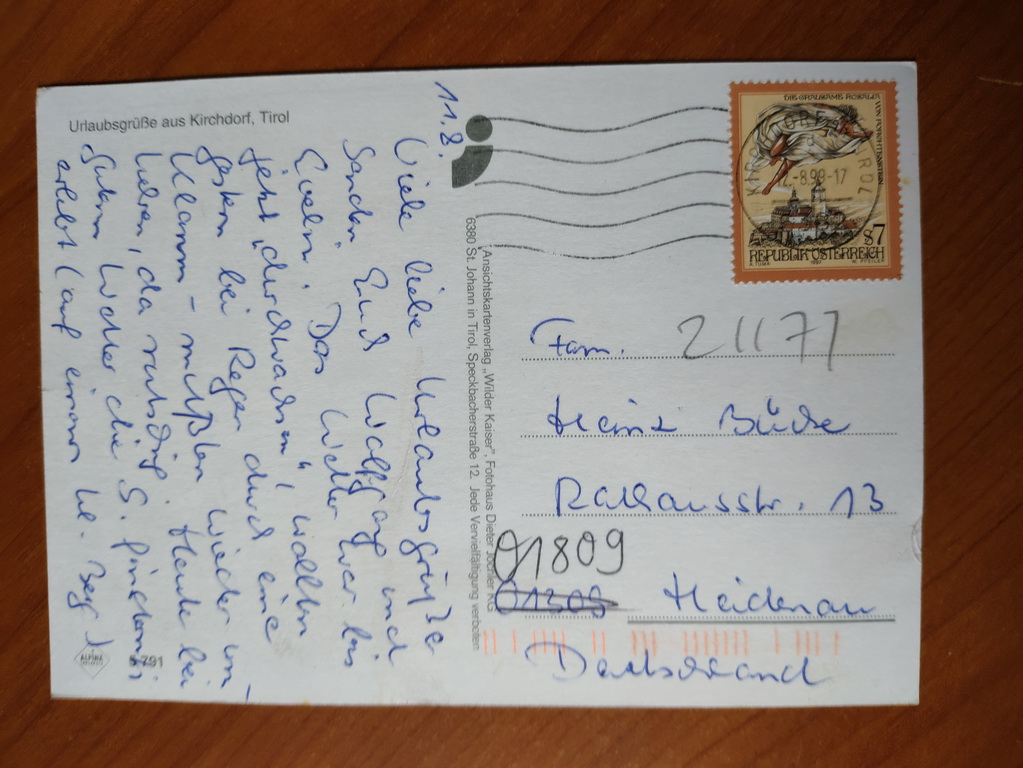 Urlaubsgrüße aus Kirchdorf, Tirol
11.8.
Viele liebe Urlaubsgrüße
senden Euch Wolfgang und
Evelin. Das Wetter war bis
jetzt „durchwachsen“, wollten
gestern bei Regen durch eine
Klamm – mußten wieder um-
kehren, da rutschig. Heute bei
gutem Wetter die S. finsternis
erlebt (auf einem Berg)
ALPINA
5791
Ansichtskartenverlag „Wilder Kaiser“, Fotohaus Dieter Jöchler KG
6380 St. Johann in Tirol, Speckbacherstraße 12 Jede Vervielfältigung verboten
DIE GRAUSAME ROSALIA
VON FORCHTENSTEIN
-8.99-17
S7
REPUBLIK ÖSTERREICH
A. TUMA 1997 W. PFEILER
Fam. 21177
Heinz
Rathausstr. 13
01809
Heidenau
Deutschland